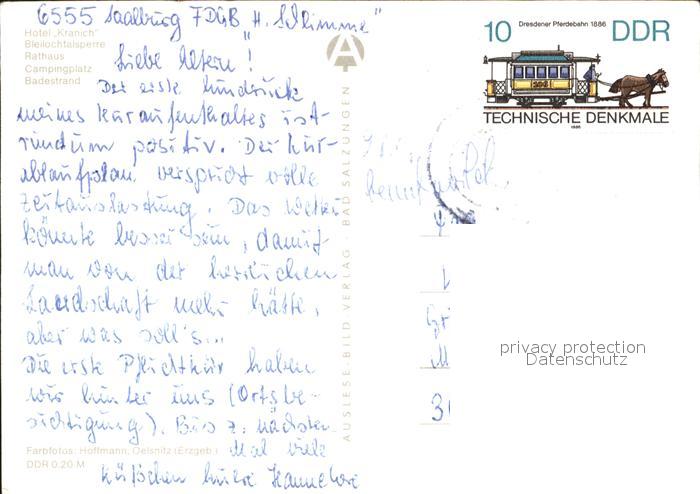 6555 Saalburg FDGB H. "Klimme"
Hotel „Kranich“
Bleilochtalsperre
Rathaus
Campingplatz
Badestrand
Liebe Eltern!
Der erste Eindruck
meines Kuraufenthaltes ist
rundum positiv. Der Kur-
ablaufplan verspricht volle
Zeitauslastung. Das Wetter
könnte besser sein, damit
man von der herrlichen
Landschaft mehr hätte,
aber was soll's...
Die erste Pflichtkür haben
wir hinter uns (Ortsbe-
sichtigung). Bis z. nächsten
Mal viele
Küßchen Eure Hannelore
Farbfotos: Hoffmann, Oelsnitz (Erzgeb.)
DDR 0.20 M
AUSLESE-BILD-VERLAG · BAD SALZUNGEN
10 Dresdener Pferdebahn 1886 DDR
TECHNISCHE DENKMALE
1986
privacy protection
Datenschutz